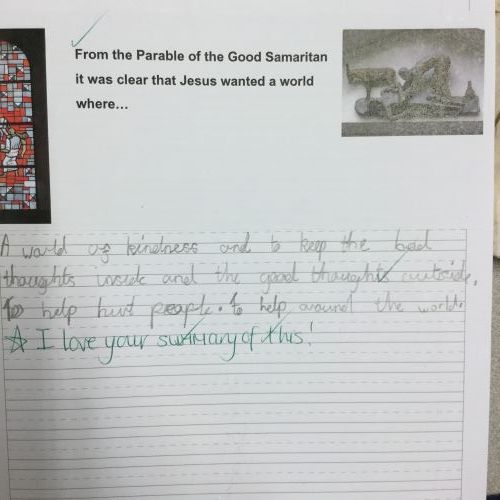 From the Parable of the Good Samaritan
it was clear that Jesus wanted a world
where...
A world of kindness and to keep the bad
thoughts inside and the good thoughts outside.
To help hurt people. To help around the world.
I love your summary of this!